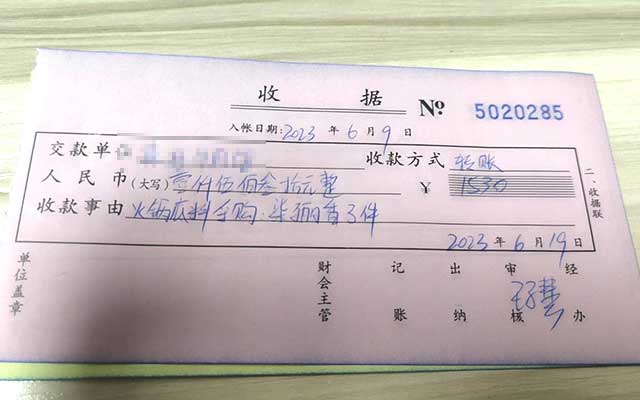 收据 № 5020285
入帐日期：2023 年 6 月 9 日
交款单 收款方式 转账
人民币(大写) 壹仟伍佰叁拾元整 ¥ 1530
收款事由 火锅底料 购：柒 香 3件
2023 年 6 月 19 日
二、收据联
单位盖章 财会主管 记账 出纳 审核 经办